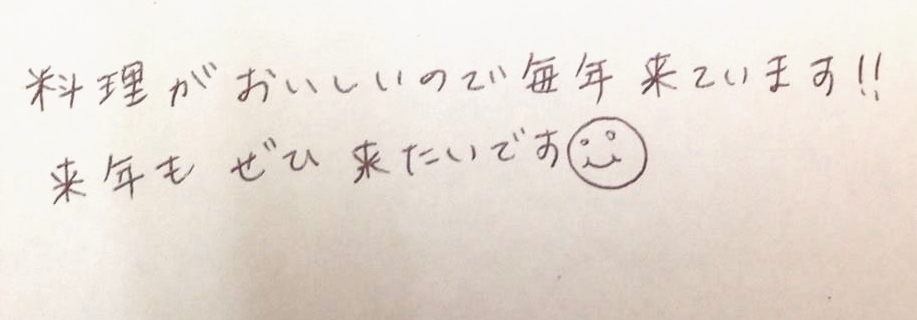 料理がおいしいので毎年来ています!!
来年もぜひ来たいです